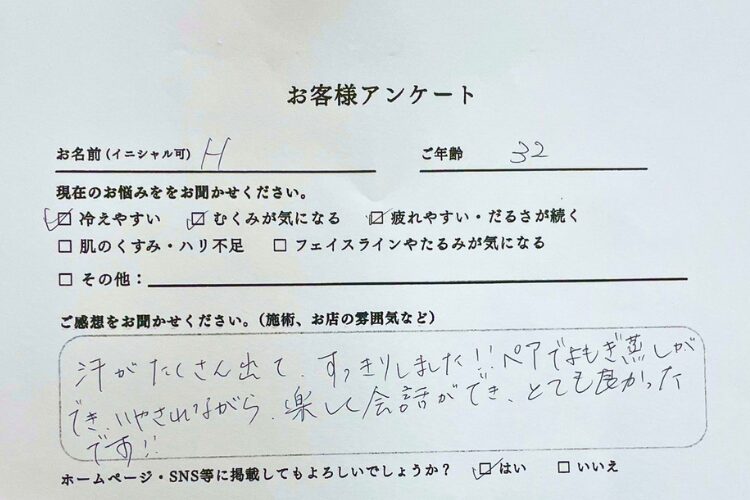 お客様アンケート
お名前(イニシャル可) H ご年齢 32
現在のお悩みををお聞かせください。
☑ 冷えやすい ☑ むくみが気になる ☑ 疲れやすい・だるさが続く
☐ 肌のくすみ・ハリ不足 ☐ フェイスラインやたるみが気になる
☐ その他:
ご感想をお聞かせください。(施術、お店の雰囲気など)
汗がたくさん出て、すっきりしました!!ペアでよもぎ蒸しが
でき、いやされながら、楽しく会話ができ、とても良かった
です!!
ホームページ・SNS等に掲載してもよろしいでしょうか? ☑ はい ☐ いいえ